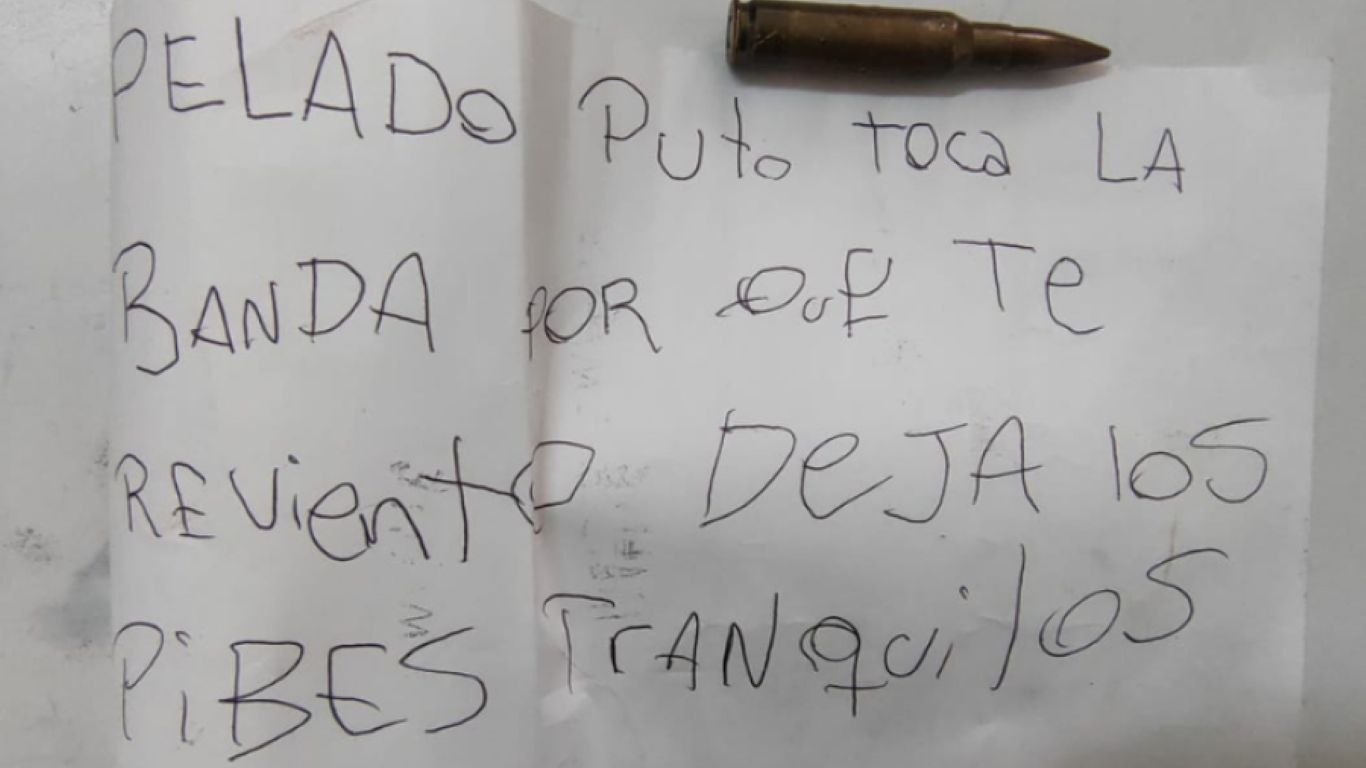 PELADO PUto TOCa LA
BANDA POR QuE Te
REVienTO DeJA loS
PiBES TrANquilOS